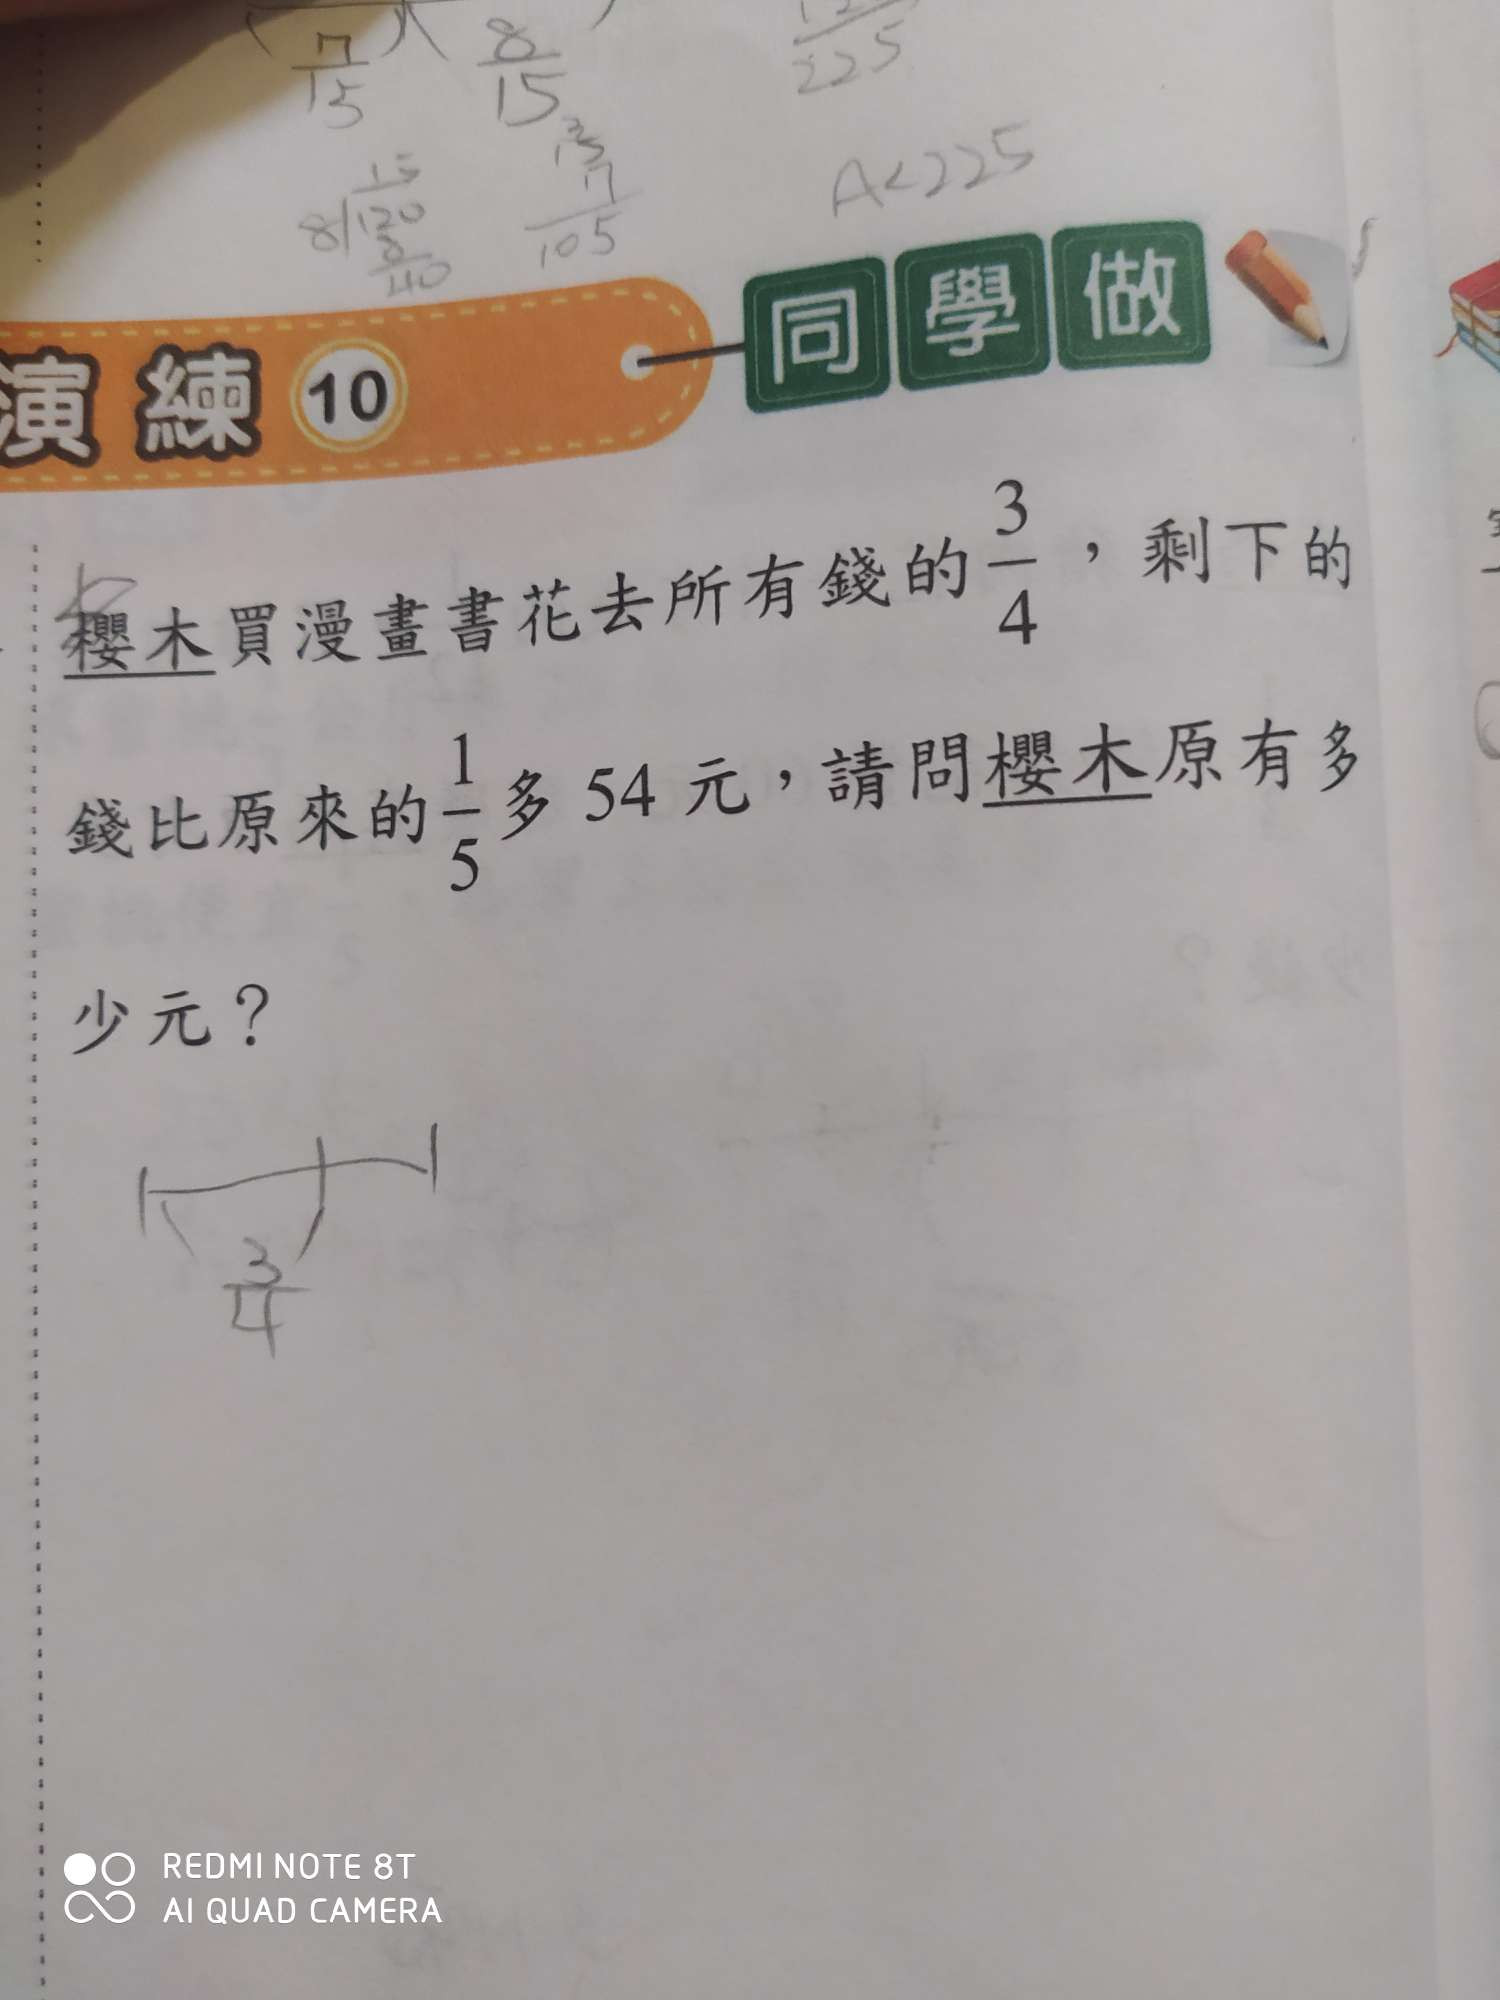 7/15 8/15
225
15
8 120
8
40
15
7
105
A<225
演練 10 同學做
櫻木買漫畫書花去所有錢的3/4,剩下的
錢比原來的1/5多 54 元,請問櫻木原有多
少元?
3/4
REDMI NOTE 8T
AI QUAD CAMERA